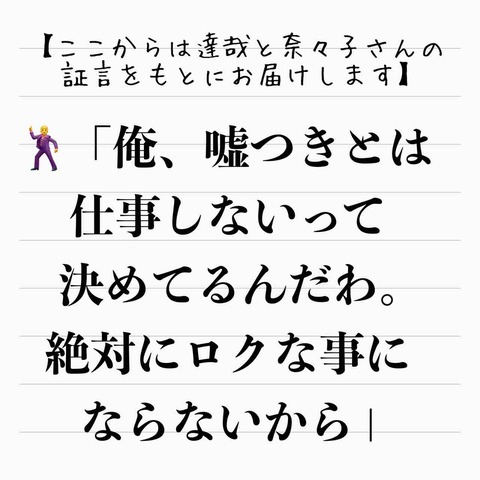 【ここからは達哉と奈々子さんの
証言をもとにお届けします】
🕺「俺、嘘つきとは
仕事しないって
決めてるんだわ。
絶対にロクな事に
ならないから|